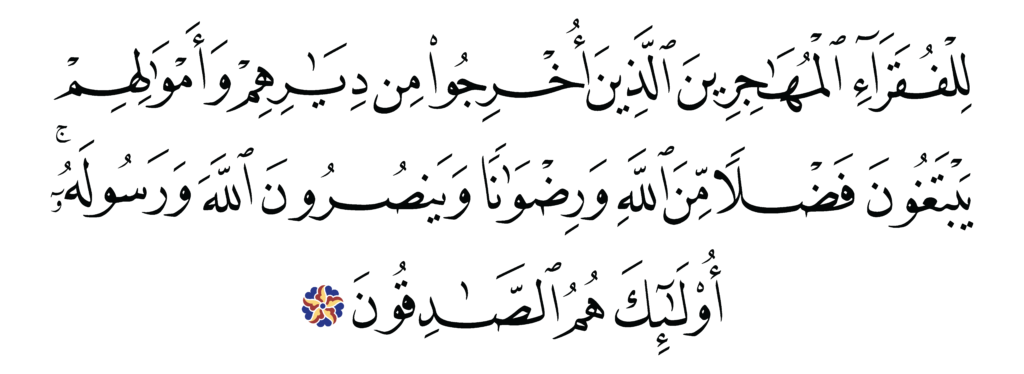 لِلْفُقَرَآءِ ٱلْمُهَـٰجِرِينَ ٱلَّذِينَ أُخْرِجُوا۟ مِن دِيَـٰرِهِمْ وَأَمْوَٰلِهِمْ
يَبْتَغُونَ فَضْلًا مِّنَ ٱللَّهِ وَرِضْوَٰنًا وَيَنصُرُونَ ٱللَّهَ وَرَسُولَهُۥٓ ۚ
أُو۟لَـٰٓئِكَ هُمُ ٱلصَّـٰدِقُونَ